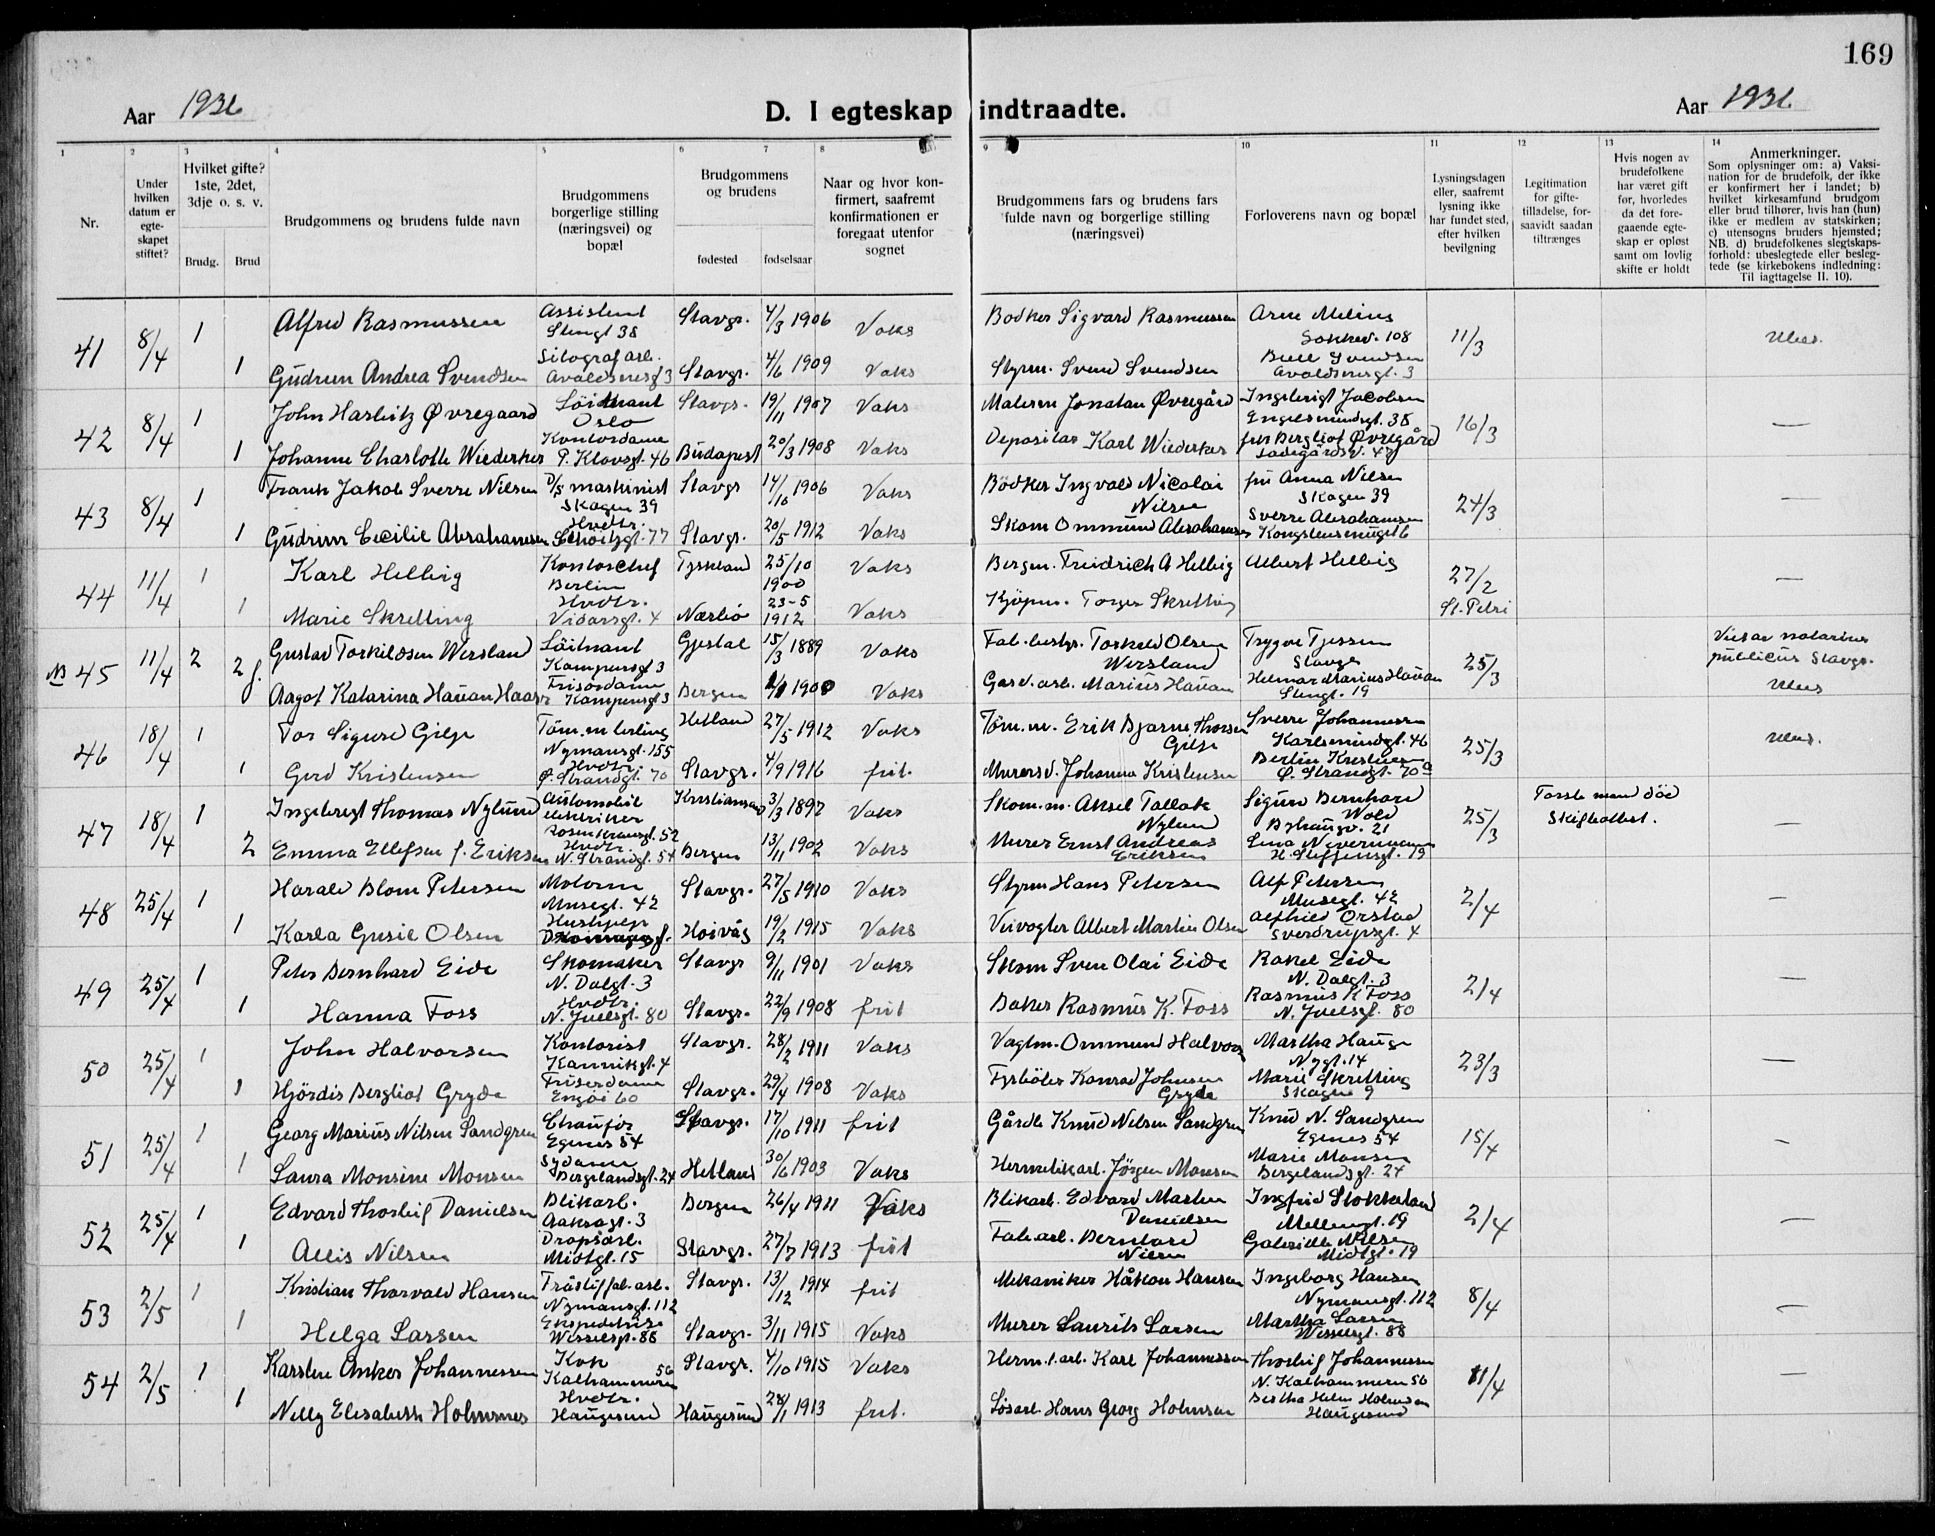 169
Aar 1936
D. I egteskap indtraadte.
Aar 1936
1 2 3 4 5 6 7 8 9 10 11 12 13 14
Nr.
Under hvilken datum er egte-skapet stiftet?
Hvilket gifte? 1ste, 2det, 3dje o. s. v.
Brudg. Brud
Brudgommens og brudens fulde navn
Brudgommens borgerlige stilling (næringsvei) og bopæl
Brudgommens og brudens
fødested fødselsaar
Naar og hvor kon-firmert, saafremt konfirmationen er foregaat utenfor sognet
Brudgommens fars og brudens fars fulde navn og borgerlige stilling (næringsvei)
Forloverens navn og bopæl
Lysningsdagen eller, saafremt lysning ikke har fundet sted, efter hvilken bevilgning
Legitimation for gifte-tilladelse, for-saavidt saadan tiltrænges
Hvis nogen av brudefolkene har været gift før, hvorledes da det fore-gaaende egte-skap er opløst samt om lovlig skifte er holdt
Anmerkninger.
Som oplysninger om: a) Vaksi-nation for de brudefolk, der ikke er konfirmert her i landet; b) hvilket kirkesamfund brudgom eller brud tilhører, hvis han (hun) ikke er medlem av statskirken; c) utensogns bruders hjemsted; NB. d) brudefolkenes slegtskaps-forhold: ubeslegtede eller besleg-tede (se kirkebokens indledning: Til iagttagelse II. 10).
41 8/4 1 Alfred Rasmussen Assistent Stengt 38 Stavgr. 4/3 1906 Vaks Bødker Sigvard Rasmussen Arne Melius 108 11/3 Ubes.
1 Gudrun Andrea Svendsen Litografarb. Avaldsnesgt 3 Stavgr. 4/6 1909 Vaks Styrm. Svend Svendsen Svendsen Avaldsnesgt. 3
42 8/4 1 John Harbitz Øvregaard Löitnant Oslo Stavgr. 19/11 1907 Vaks Malerm Jonatan Øvregård Ingebrigt Jacobsen Engelsmindegt. 38 16/3 —
1 Johanne Charlotte Wiederker Kontordame P. Klovsgt. 46 Budapest 20/3 1908 Vaks Karl Wiederker fru Bergliot Øvregård
43 8/4 1 Frank Jakob Sverre Nilsen D/S maskinist Skagen 39 Stavgr 14/10 1906 Vaks Bödker Ingvald Nicolai Nilsen fru Anna Nilsen Skagen 39 24/3 —
1 Gudrun Cecilie Abrahamsen Hvdtr. 77 Stavgr. 20/5 1912 Vaks Skom Ommund Abrahamsen Sverre Abrahamsen
44 11/4 1 Karl Helbig Kontorchef Berlin Tyskland 25/10 1900 Vaks Bergm. Friedrich A Helbig Albert Helbig 27/2 St. Petri —
1 Marie Skretting Hvdtr. Vidarsgt. 4 Nærbö 23-5 1912 Vaks Kjöpm. Torger Skretting
NB 45 11/4 2 Gustav Torkildsen Wersland Löitnant Kampensgt 3 Gjestal 15/3 1889 Vaks Fab. bestyr. Torkild Olsen Wersland Trygve Tjessem Stavgr 25/3 Viet av notarius publicus Stavgr.
2 f. Aagot Katarina Hauan Haaver Frisördame Kampensgt 3 Bergen 1900 Vaks Gasv. arb. Marius Hauan Helmar Marius Hauan Stengt. 19 Ubes
46 18/4 1 Tor Sigurd Gilje Töm.m lerling Nymansgt. 155 Hetland 27/5 1912 Vaks Töm. m. Erik Bjarne Thorsen Gilje Sverre Johannessen Karlsmindegt. 46 25/3 Ubes.
1 Gerd Kristensen Hvdtr. Ø. Strandgt. 70 Stavgr. 4/9 1916 frit. Murersv. Johannes Kristensen Berlin Kristensen Ø. Strandgt. 70a
47 18/4 1 Ingebregt Thomas Nylund Automobil elektriker Rosenkransgt. 52 Kristiansand 3/3 1897 Vaks Skom. m. Aksel Tallak Nylund Sigurd Bernhard Wold Byhaugv. 21 25/3 Förste mand död Skifteattest. —
2 Emma Ellefsen f. Eriksen Hvdtr. N. Strandgt. 54 Bergen 13/11 1902 Vaks Murer Ernst Andreas Eriksen H. Steffensgt. 19
48 25/4 1 Harald Blom Petersen Motorm Musegt. 42 Stavgr. 27/5 1910 Vaks Styrm Hans Petersen Alf Petersen Musegt. 42 2/4 —
1 Karla Gusie Olsen Hushjelp Hoivåg 19/2 1915 Vaks Veivogter Albert Martin Olsen Alfhild Orstad Sverdrupsgt. 4
49 25/4 1 Peter Bernhard Eide Skomaker N. Dalgt. 3 Stavgr 9/11 1901 Vaks Skom Sven Olai Eide Rakel Eide N. Dalgt. 3 2/4 —
1 Hanna Foss Hvdtr. N. Juelsgt. 80 Stavgr. 22/9 1908 frit Baker Rasmus K. Foss Rasmus K Foss N. Juelsgt. 80
50 25/4 1 John Halvorsen Kontorist Kannikgt. 4 Stavgr. 28/2 1911 Vaks Vagtm. Ommund Halvorsen Martha Hauge Nygt. 14 23/3 —
1 Hjördis Bergliot Gryde Friserdame Engöi 60 Stavgr. 29/4 1908 Vaks Fyrböter Konrad Johnsen Gryde Marie Skretting Skagen 9
51 25/4 1 Georg Marius Nilsen Sandgren Chauför Egenes 54 Stavgr. 17/10 1911 frit Gårdb. Knud Nilsen Sandgren Knud N. Sandgren Egenes 54 15/4 —
1 Laura Monsine Monsen Sydame Bergelandsgt. 24 Hetland 30/6 1903 Vaks Hermetikarb. Jörgen Monsen Marie Monsen Bergelandsgt. 24
52 25/4 1 Edvard Thorleif Danielsen Blikarb. Aaksagt. 3 Bergen 26/4 1911 Vaks Blikarb. Edvard Martin Danielsen Ingfrid Stokkeland Mellemgt. 19 2/4 —
1 Allis Nilsen Dropsarb. Midtgt. 15 Stavgr. 27/7 1913 frit Fab. arb. Bernhard Nilsen Gabrielle Nilsen Midtgt. 19
53 2/5 1 Kristian Thorvald Hansen Nymansgt. 112 Stavgr. 13/12 1914 frit Mekaniker Håkon Hansen Ingeborg Hansen Nymansgt. 112 8/4 —
1 Helga Larsen Ekspeditrise Wesselsgt. 88 Stavgr. 3/11 1915 Vaks Murer Laurits Larsen Martha Larsen Wesselsgt. 88
54 2/5 1 Karsten Anker Johannessen Kok Kalhammeren 56 Stavgr. 4/10 1915 Vaks Herm. f. arb. Karl Johannessen Thorleif Johannessen N. Kalhammeren 56 11/4 —
1 Nelly Elisabeth Holmenes Hvdtr. Haugesund Haugesund 28/1 1913 frit. Løsarb. Hans Georg Holmsen Bertha Helen Haugesund